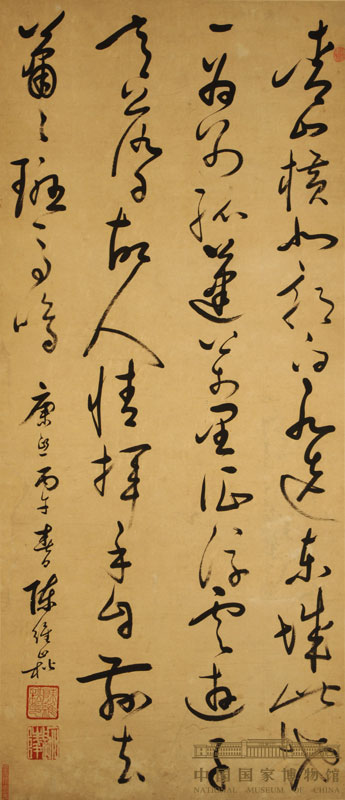 青山横北郭白水遶东城此地
一为别孤蓬万里征浮云游子
意落日故人情挥手自兹去
萧々班马鸣
康熙丙午春日陈维崧
中国国家博物馆
NATIONAL MUSEUM OF CHINA